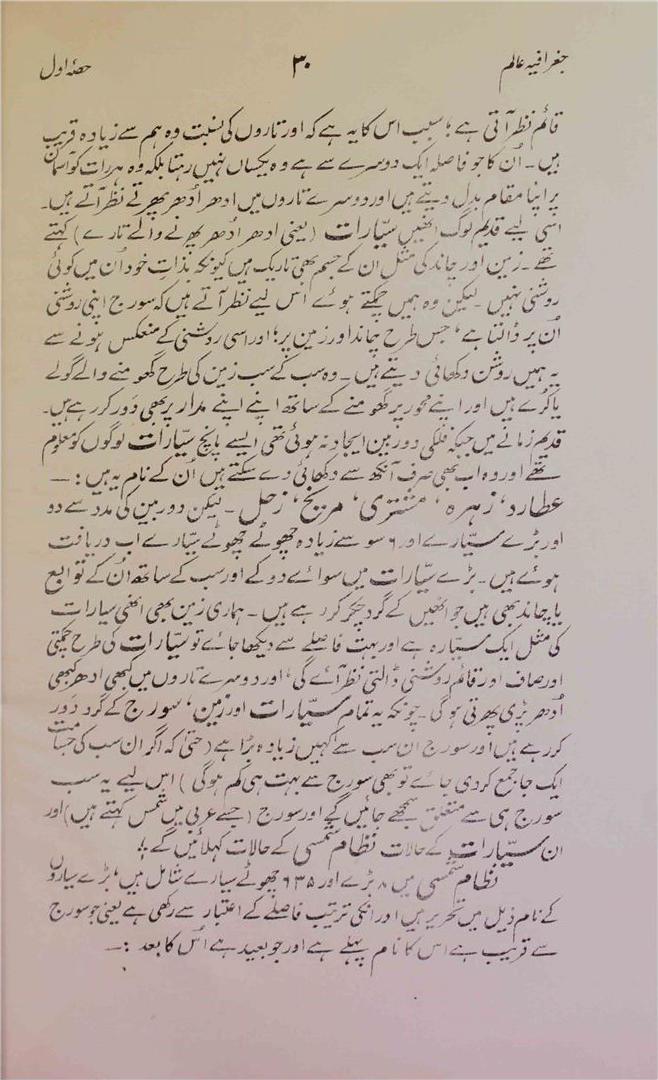 جغرافیہ عالم ۳۰ حصۂ اول
قائم نظر آتی ہے؛ سبب اس کا یہ ہے کہ اور تاروں کی نسبت وہ ہم سے زیادہ قریب
ہیں۔ اُن کا جو فاصلہ ایک دوسرے سے ہے وہ یکساں نہیں رہتا بلکہ وہ ہر رات کو آسمان
پر اپنا مقام بدل دیتے ہیں اور دوسرے تاروں میں ادھر اُدھر پھرتے نظر آتے ہیں۔
اسی لیے قدیم لوگ انھیں سیّارات (یعنی ادھر اُدھر پھرنے والے تارے) کہتے
تھے۔ زمین اور چاند کی مثل ان کے جسم بھی تاریک ہیں کیونکہ بذاتِ خود اُن میں کوئی
روشنی نہیں۔ لیکن وہ ہمیں چمکتے ہوئے اس لیے نظر آتے ہیں کہ سورج اپنی روشنی
اُن پر ڈالتا ہے، جس طرح چاند اور زمین پر؛ اور اسی روشنی کے منعکس ہونے سے
یہ ہمیں روشن دکھائی دیتے ہیں۔ وہ سب کے سب زمین کی طرح گھومنے والے گولے
یا کُرے ہیں اور اپنے محور پر گھومنے کے ساتھ اپنے اپنے مدار پر بھی دَور کر رہے ہیں۔
قدیم زمانے میں جبکہ فلکی دوربین ایجاد نہ ہوئی تھی ایسے پانچ سیّارات لوگوں کو معلوم
تھے اور وہ اب بھی صرف آنکھ سے دکھائی دے سکتے ہیں اُن کے نام یہ ہیں :۔
عطارد، زہرہ، مشتری، مریخ، زحل۔ لیکن دوربین کی مدد سے دو
اور بڑے سیّارے اور ۶ سو سے زیادہ چھوٹے چھوٹے سیّارے اب دریافت
ہوئے ہیں۔ بڑے سیّارات میں سوائے دو کے اور سب کے ساتھ اُن کے توابع
یا چاند بھی ہیں جو انھیں کے گرد چکر کر رہے ہیں۔ ہماری زمین بھی انھی سیارات
کی مثل ایک سیّارہ ہے اور بہت فاصلے سے دیکھا جائے تو سیّارات کی طرح چمکتی
اور صاف اور قائم روشنی ڈالتی نظر آئے گی، اور دوسرے تاروں میں کبھی ادھر کبھی
اُدھر پڑی پھرتی ہوگی۔ چونکہ یہ تمام سیّارات اور زمین، سورج کے گرد دَور
کر رہے ہیں اور سورج ان سب سے کہیں زیادہ بڑا ہے (حتیٰ کہ اگر ان سب کی جسامت
ایک جا جمع کردی جائے تو بھی سورج سے بہت ہی کم ہوگی) اس لیے یہ سب
سورج ہی سے متعلق سمجھے جائیں گے اور سورج (جسے عربی میں شمس کہتے ہیں) اور
ان سیّارات کے حالات نظام شمسی کے حالات کہلائیں گے؛
نظام شمسی میں ۸ بڑے اور ۶۳۵ چھوٹے سیارے شامل ہیں، بڑے سیاروں
کے نام ذیل میں تحریر ہیں اور انکی ترتیب فاصلے کے اعتبار سے رکھی ہے یعنی جو سورج
سے قریب ہے اس کا نام پہلے ہے اور جو بعید ہے اُس کا بعد :۔